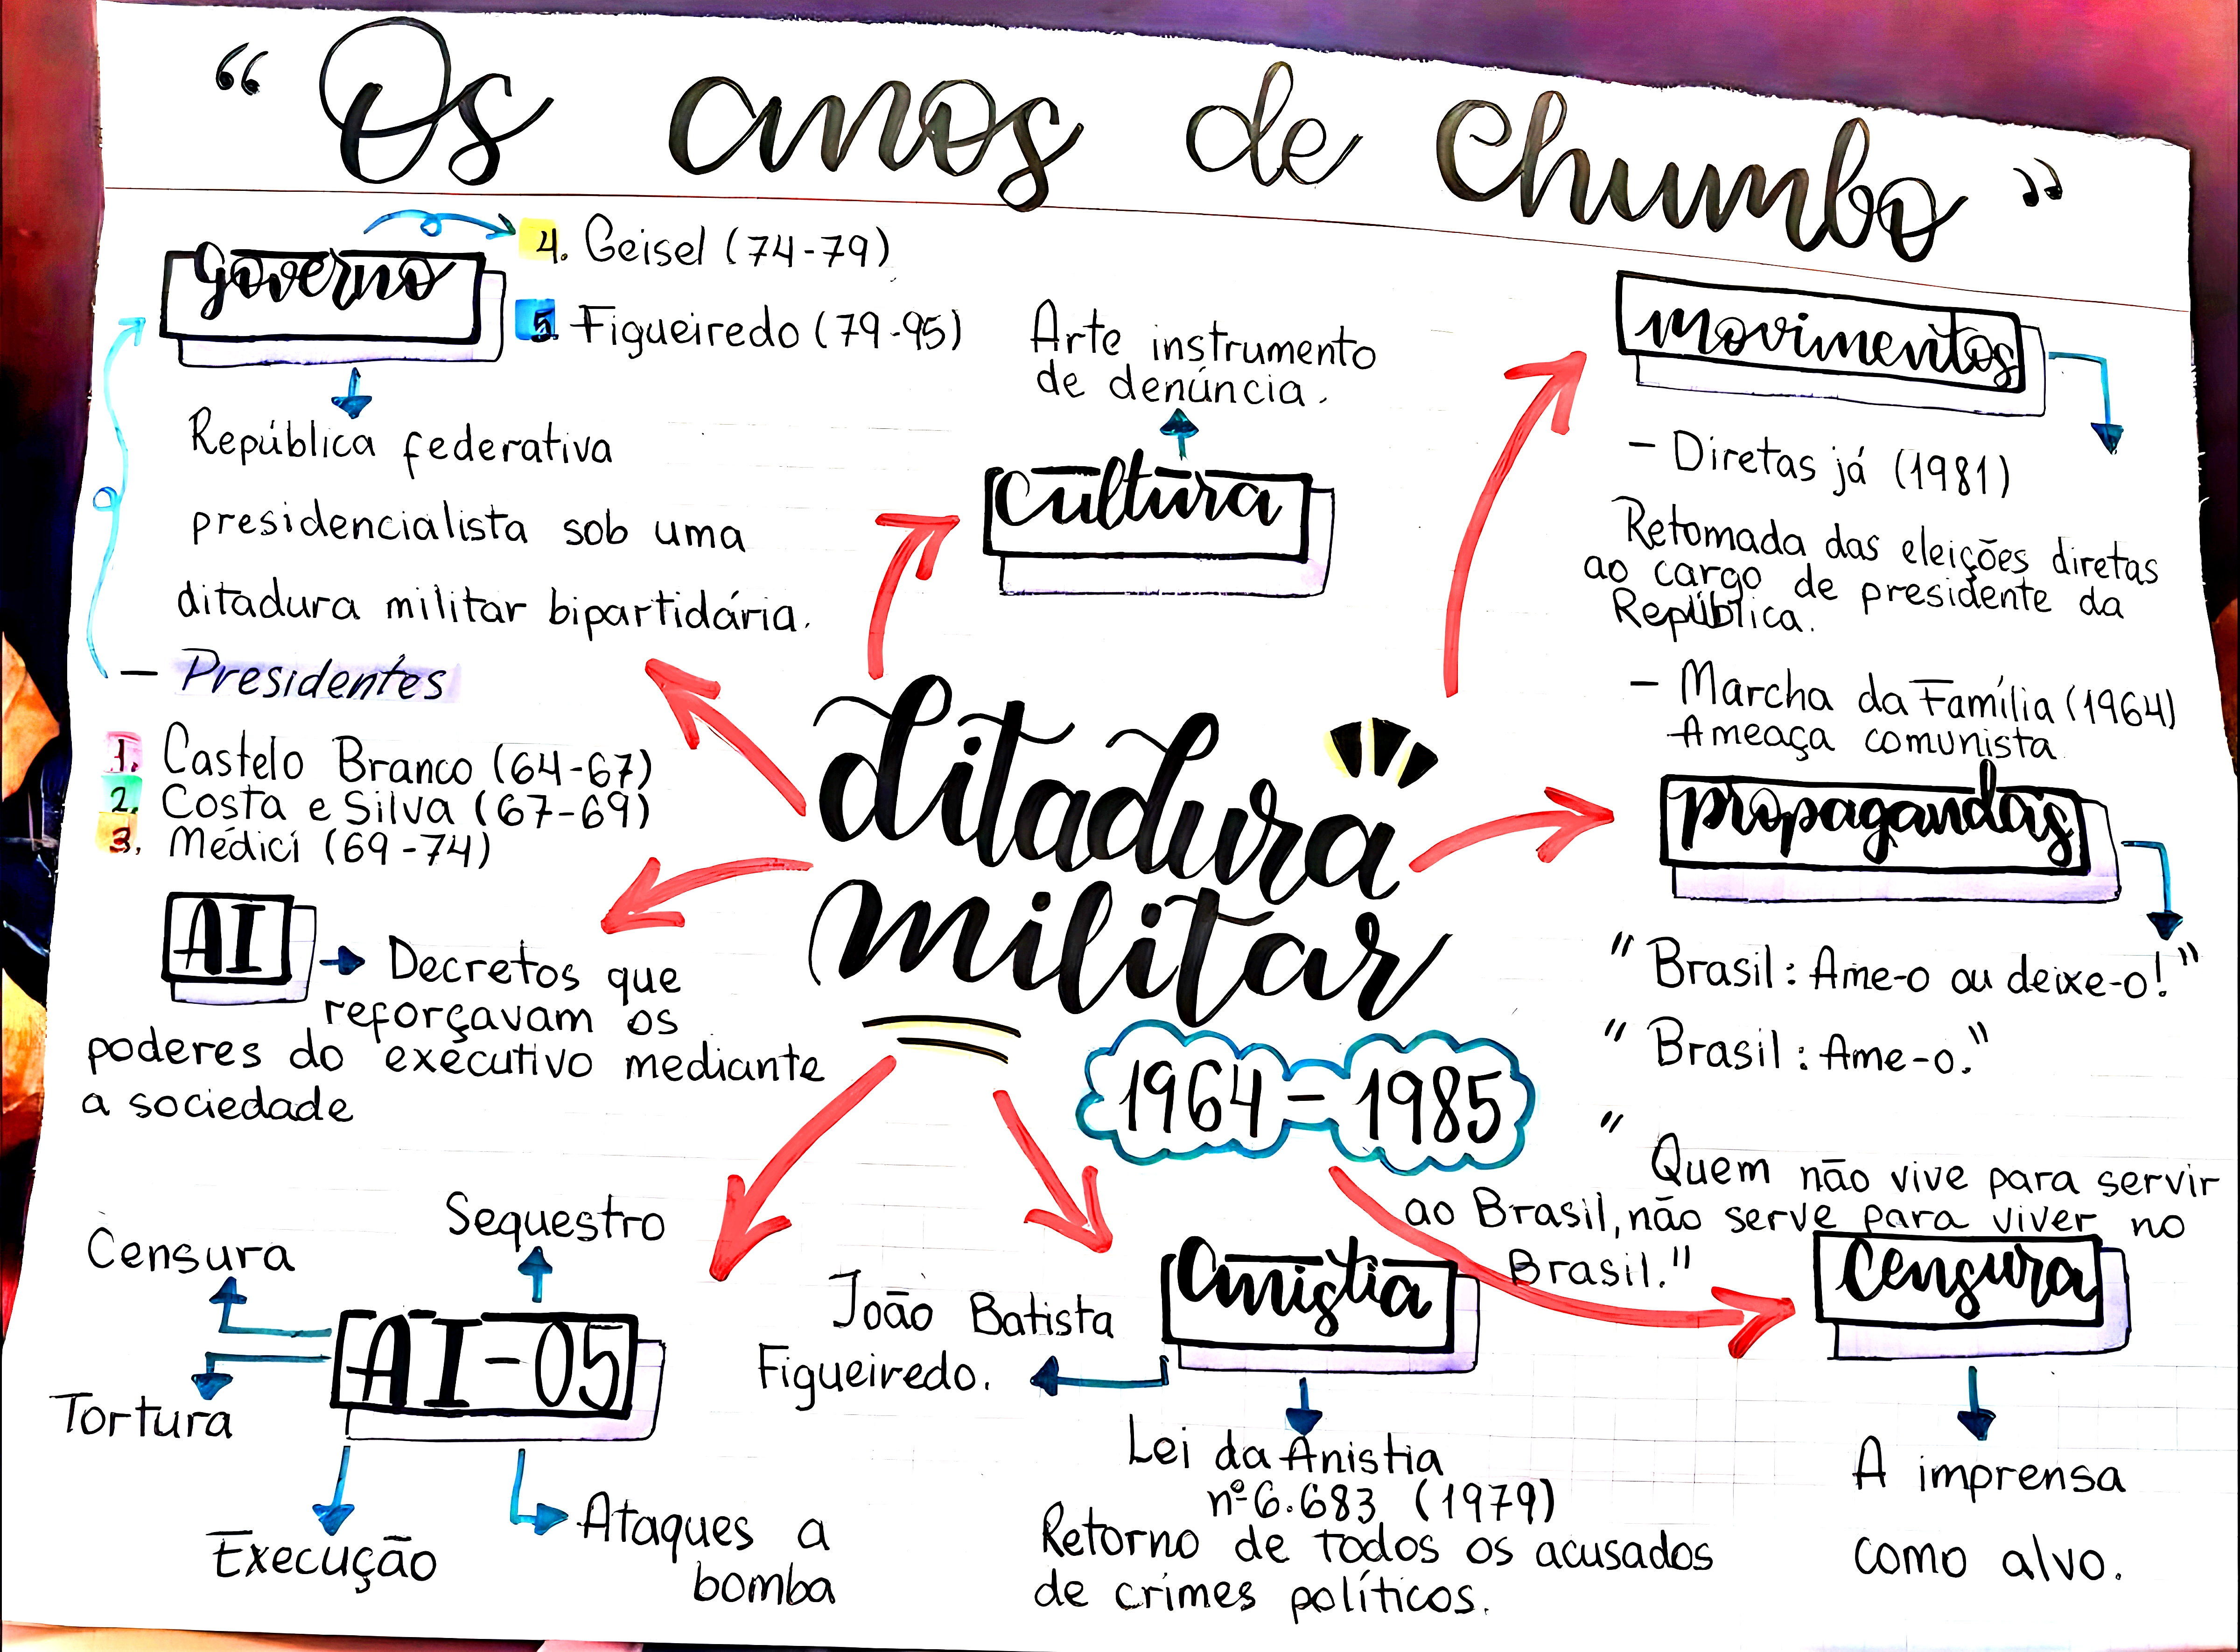 “ Os anos de chumbo ”
governo
4. Geisel (74-79)
5. Figueiredo (79-95)
República federativa
presidencialista sob uma
ditadura militar bipartidária.
- Presidentes
1. Castelo Branco (64-67)
2. Costa e Silva (67-69)
3. Médici (69-74)
Arte instrumento
de denúncia.
cultura
movimentos
- Diretas já (1981)
Retomada das eleições diretas
ao cargo de presidente da
República.
- Marcha da Família (1964)
Ameaça comunista
ditadura
militar
1964 - 1985
propagandas
"Brasil: Ame-o ou deixe-o!"
"Brasil: Ame-o."
" Quem não vive para servir
ao Brasil, não serve para viver no
Brasil."
AI
Decretos que
reforçavam os
poderes do executivo mediante
a sociedade
Sequestro
Censura
AI-05
Tortura
Execução
Ataques a
bomba
anistia
João Batista
Figueiredo.
Lei da Anistia
nº 6.683 (1979)
Retorno de todos os acusados
de crimes políticos.
censura
A imprensa
como alvo.